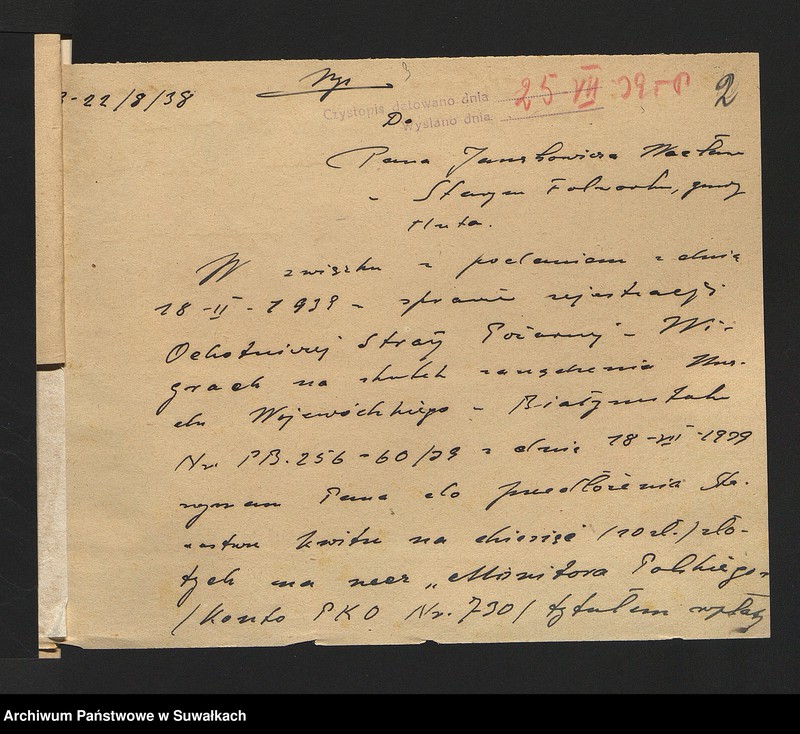 3-22/8/38
Czystopis datowano dnia 25 VII 39
Wysłano dnia
2
Do
Pana Janczkowicza Wacława
Starym Folwarku, gminy
Huta.
W związku z podaniem z dnia
18-II-1939 w sprawie rejestracji
Ochotniczej Straży Pożarnej w Wi-
grach na skutek zarządzenia Urzę-
du Wojewódzkiego w Białymstoku
Nr. PB. 256-60/39 z dnia 18-VII-1939
wzywam Pana do przedłożenia Sta-
rostwu kwitu na dziesięć /10 zł./ zło-
tych na rzecz "Monitora Polskiego"
/Konto PKO Nr. 730/ tytułem wpłaty
Archiwum Państwowe w Suwałkach